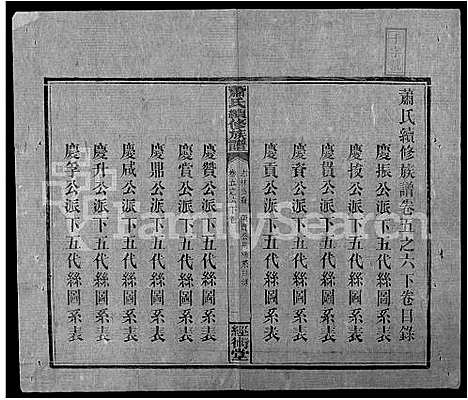 蕭氏續修族譜卷五之六下卷目錄
慶振公派下五代絲圖系表
慶按公派下五代絲圖系表
慶貴公派下五代絲圖系表
慶賚公派下五代絲圖系表
慶貢公派下五代絲圖系表
蕭氏續修族譜
經術堂
慶贊公派下五代絲圖系表
慶賞公派下五代絲圖系表
慶鼎公派下五代絲圖系表
慶咸公派下五代絲圖系表
慶升公派下五代絲圖系表
慶孚公派下五代絲圖系表
FamilySearch